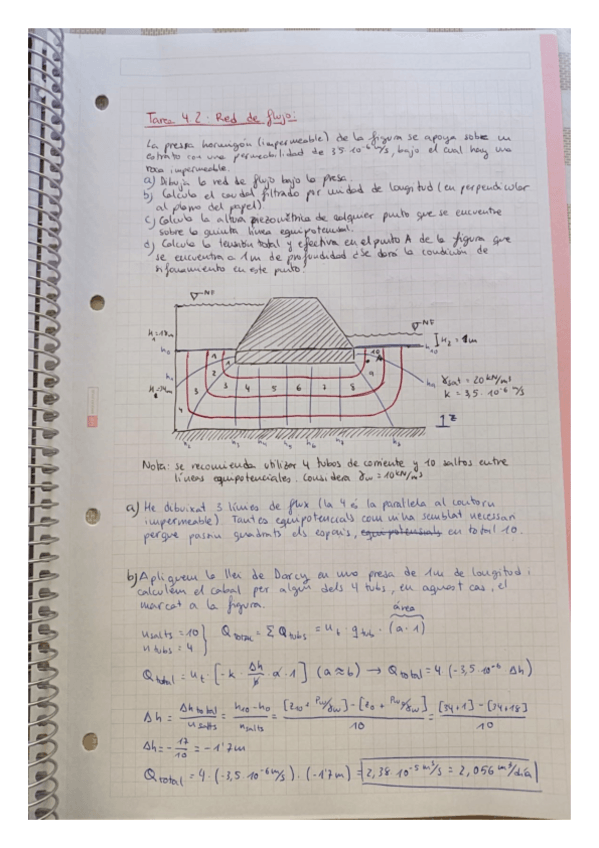 Tarea 4.2: Red de flujo:
La presa hormigón (impermeable) de la figura se apoya sobre un
estrato con una permeabilidad de 3,5·10⁻⁶ m/s, bajo el cual hay una
roca impermeable.
a) Dibuja la red de flujo bajo la presa.
b) Calcula el caudal filtrado por unidad de longitud (en perpendicular
al plano del papel)
c) Calcula la altura piezométrica de cualquier punto que se encuentre
sobre la quinta línea equipotencial.
d) Calcula la tensión total y efectiva en el punto A de la figura que
se encuentra a 1m de profundidad ¿Se dará la condición de
sifonamiento en este punto?
NF
NF
H₁=18m
H₂=1m
h₀
h₁₀
1 1 10 A
h₁ 2 9 h₉
3 3 4 5 6 7 8
4
h₂ h₃ h₄ h₅ h₆ h₇ h₈
γsat = 20 kN/m³
k = 3,5·10⁻⁶ m/s
z
Nota: se recomienda utilizar 4 tubos de corriente y 10 saltos entre
líneas equipotenciales. Considera γw = 10 kN/m³
a) He dibuixat 3 línies de flux (la 4 és la paral·lela al contorn
impermeable). Tantes equipotencials com m'ha semblat necessari
perque passin quadrats els espais, equipotencials en total 10.
b) Apliquem la llei de Darcy en una presa de 1m de longitud i
calculem el cabal per algún dels 4 tubs, en aquest cas, el
marcat a la figura.
área
n salts = 10
n tubs = 4
Q total = Σ Q tubs = n t · q tub · (a·1)
Q total = n t · [-k · Δh/b · a · 1] (a≈b) → Q total = 4 (-3,5·10⁻⁶ Δh)
Δh = Δh total / n salts = h₁₀-h₀ / n salts = [z₁₀ + Pw/γw] - [z₀ + Pw/γw] / 10 = [34+1] - [34+18] / 10
Δh = -17/10 = -1'7m
Q total = 4 · (-3,5·10⁻⁶ m/s) · (-1'7m) = 2,38·10⁻⁵ m³/s = 2,056 m³/día